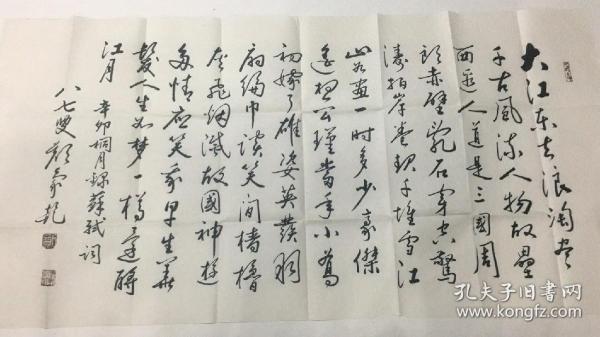 大江东去浪淘尽
千古风流人物故垒
西边人道是三國周
郎赤壁乱石穿空驚
涛拍岸卷起千堆雪江
山如画一时多少豪傑
遥想公瑾當年小喬
初嫁了雄姿英發羽
扇綸巾谈笑间樯櫓
灰飞烟滅故國神遊
多情应笑我早生華
髮人生如梦一樽還酹
江月
辛卯桐月錄蘇軾词
八七叟顧家乾
孔夫子旧书网
www.kongfz.com